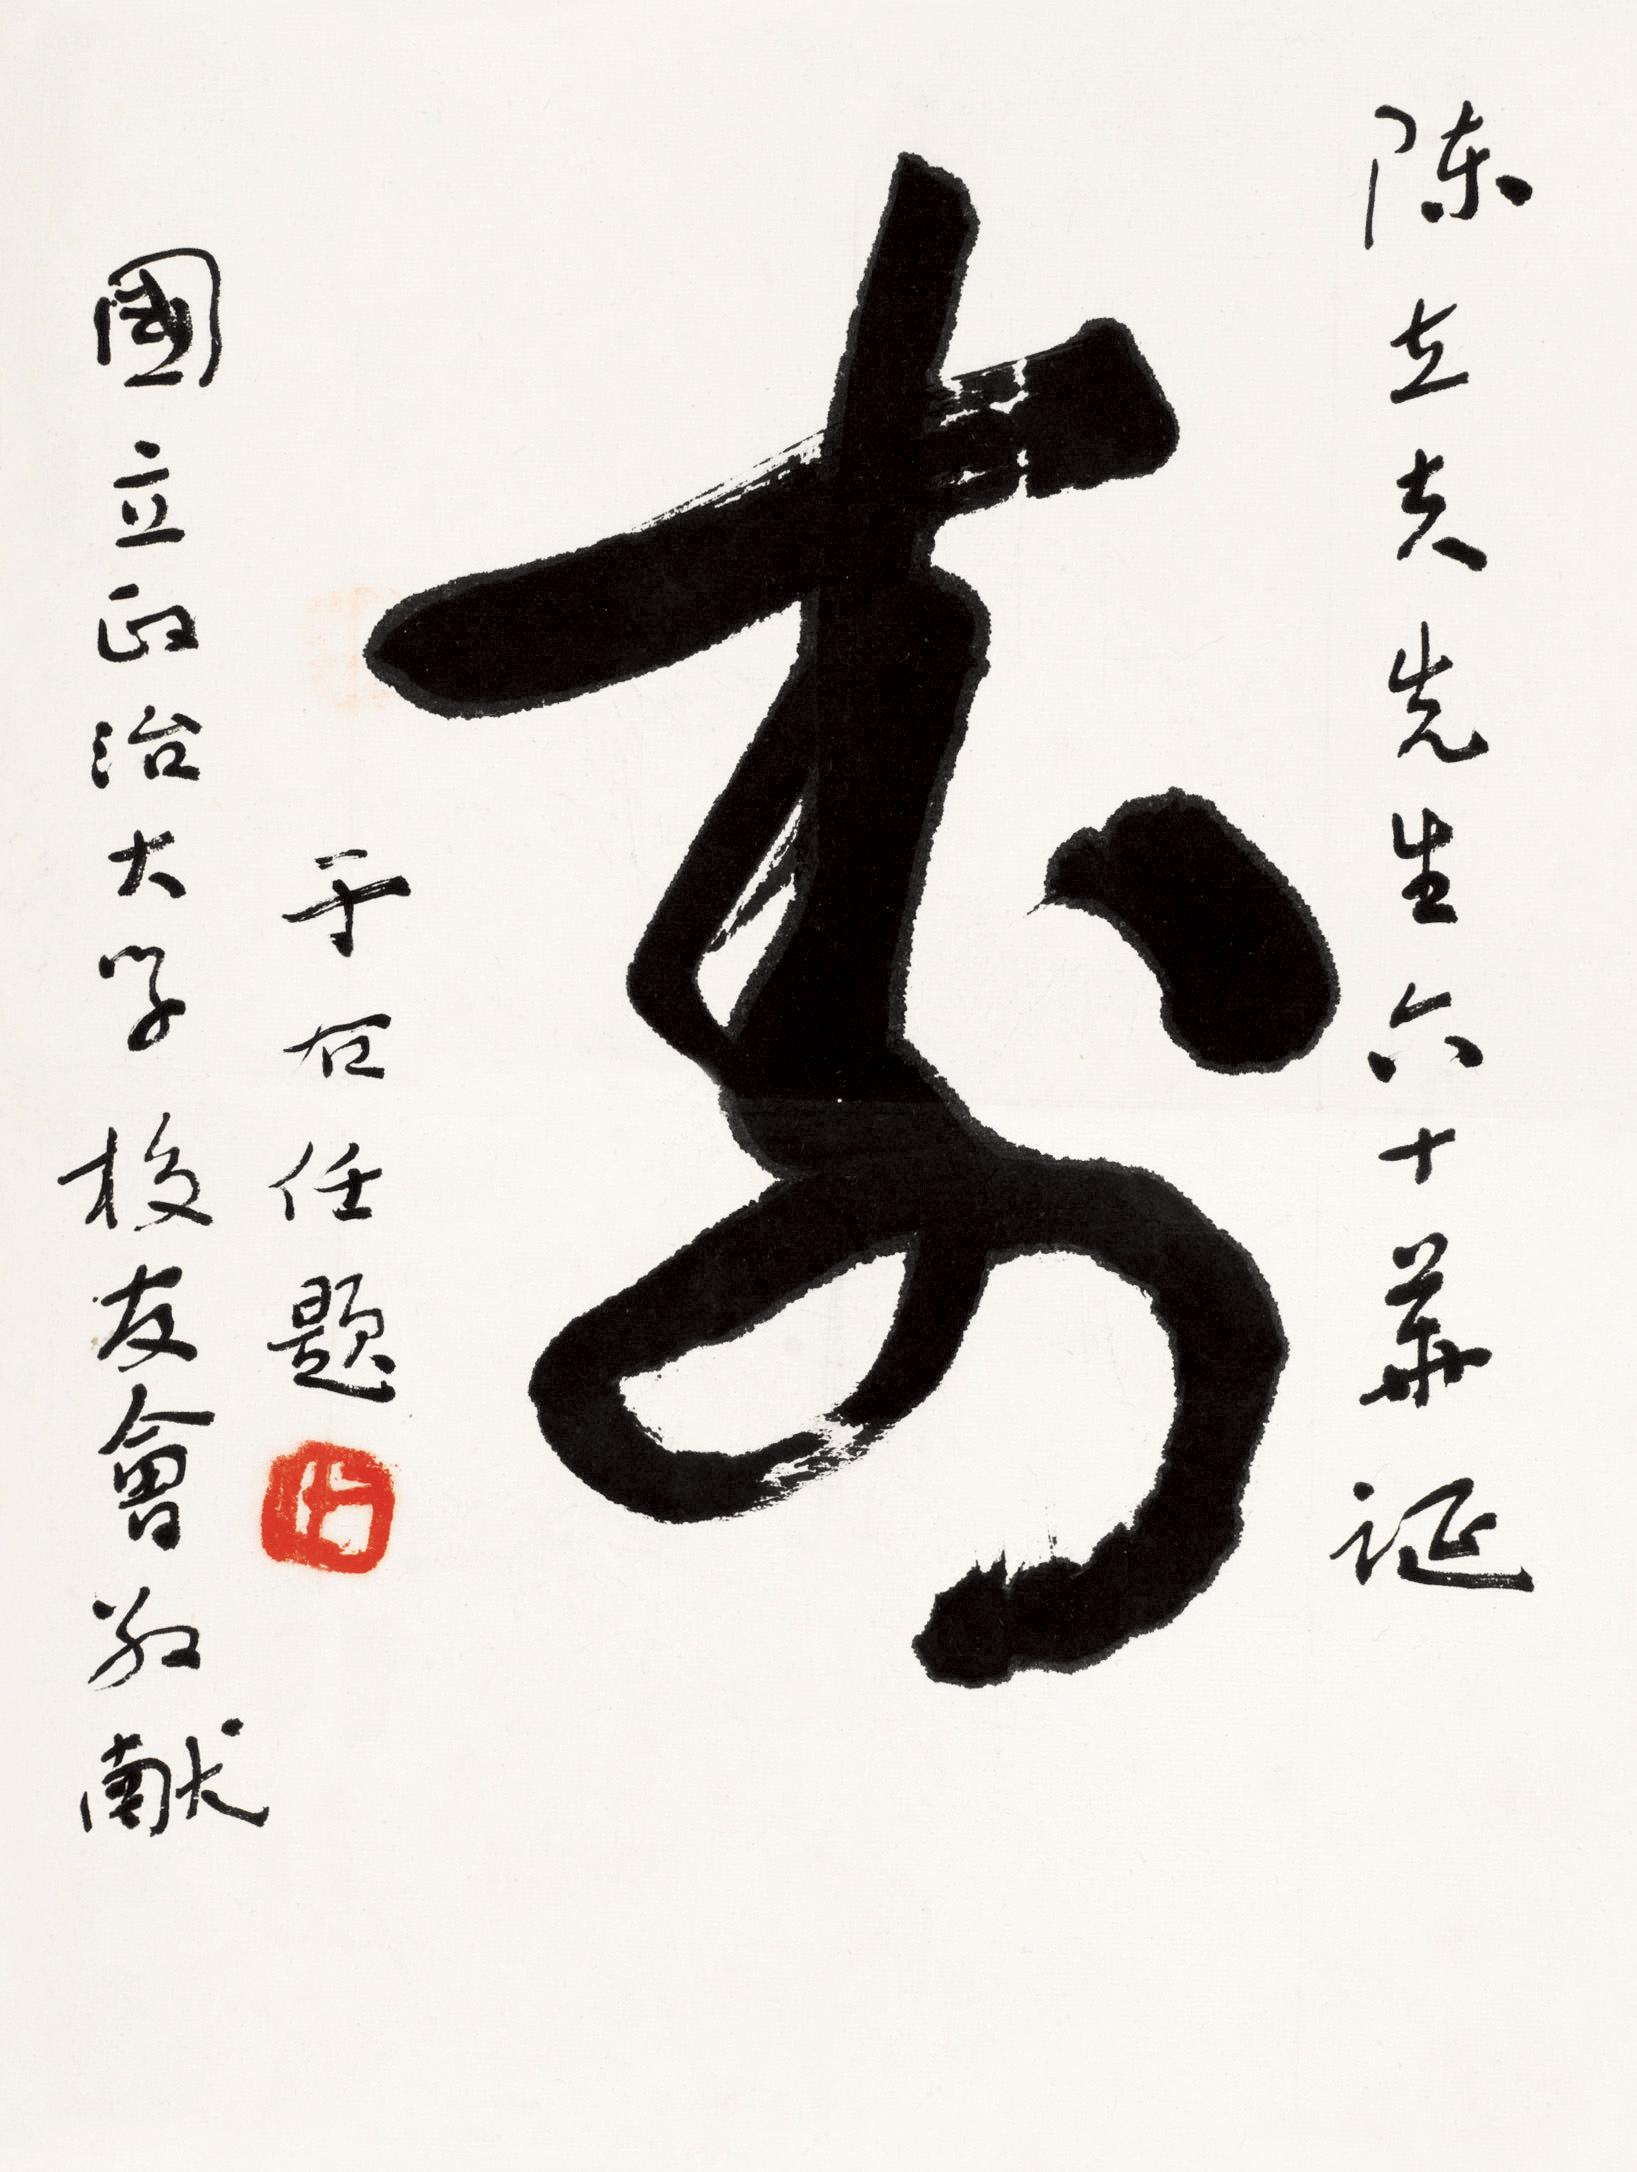 陳立夫先生六十華誕
壽
于右任題
國立政治大學校友會敬獻